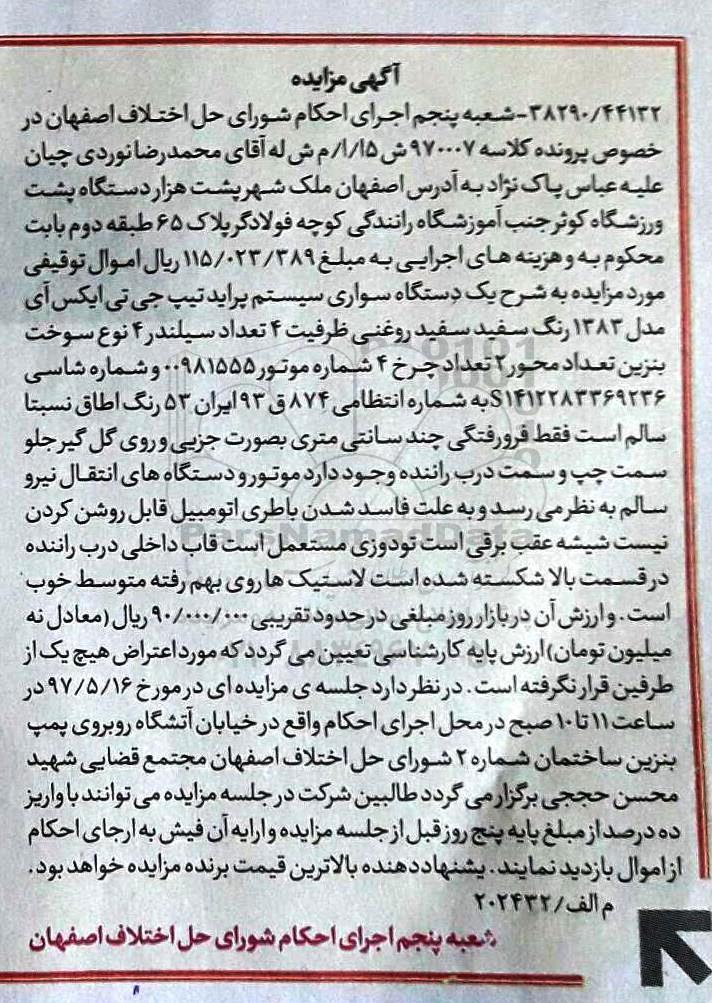 آگهی مزایده
۳۸۲۹۰/۴۴۱۳۲-شعبه پنجم اجرای احکام شورای حل اختلاف اصفهان در
خصوص پرونده کلاسه ۹۷۰۰۰۷ ش ۱۵/ا/ م ش له آقای محمدرضا نوردی چیان
علیه عباس پاک نژاد به آدرس اصفهان ملک شهر پشت هزار دستگاه پشت
ورزشگاه کوثر جنب آموزشگاه رانندگی کوچه فولادگر پلاک ۶۵ طبقه دوم بابت
محکوم به و هزینه های اجرایی به مبلغ ۱۱۵/۰۲۳/۳۸۹ ریال اموال توقیفی
مورد مزایده به شرح یک دستگاه سواری سیستم پراید تیپ جی تی ایکس آی
مدل ۱۳۸۳ رنگ سفید سفید روغنی ظرفیت ۴ تعداد سیلندر ۴ نوع سوخت
بنزین تعداد محور ۲ تعداد چرخ ۴ شماره موتور ۰۰۹۸۱۵۵۵ و شماره شاسی
S۱۴۱۲۲۸۳۳۶۹۲۳۶ به شماره انتظامی ۸۷۴ ق ۹۳ ایران ۵۳ رنگ اطاق نسبتا
سالم است فقط فرورفتگی چند سانتی متری بصورت جزیی و روی گل گیر جلو
سمت چپ و سمت درب راننده وجود دارد موتور و دستگاه های انتقال نیرو
سالم به نظر می رسد و به علت فاسد شدن باطری اتومبیل قابل روشن کردن
نیست شیشه عقب برقی است تودوزی مستعمل است قاب داخلی درب راننده
در قسمت بالا شکسته شده است لاستیک ها روی بهم رفته متوسط خوب
است. و ارزش آن در بازار روز مبلغی در حدود تقریبی ۹۰/۰۰۰/۰۰۰ ریال (معادل نه
میلیون تومان) ارزش پایه کارشناسی تعیین می گردد که مورد اعتراض هیچ یک از
طرفین قرار نگرفته است. در نظر دارد جلسه ی مزایده ای در مورخ ۹۷/۵/۱۶ در
ساعت ۱۱ تا ۱۰ صبح در محل اجرای احکام واقع در خیابان آتشگاه روبروی پمپ
بنزین ساختمان شماره ۲ شورای حل اختلاف اصفهان مجتمع قضایی شهید
محسن حججی برگزار می گردد طالبین شرکت در جلسه مزایده می توانند با واریز
ده درصد از مبلغ پایه پنج روز قبل از جلسه مزایده و ارایه آن فیش به ارجای احکام
از اموال بازدید نمایند. پیشنهاددهنده بالاترین قیمت برنده مزایده خواهد بود.
م الف/۲۰۲۴۳۲
شعبه پنجم اجرای احکام شورای حل اختلاف اصفهان
ParsNamadData